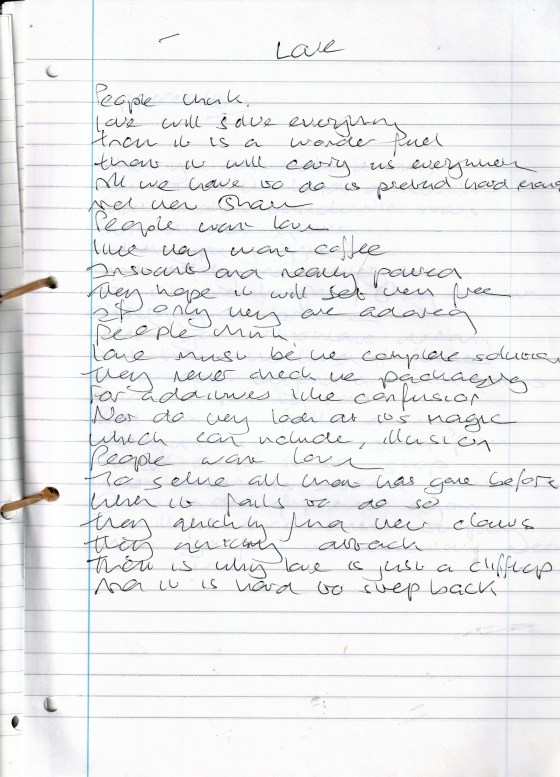 Love
People think.
Love will solve everything
That it is a wonder fuel
that it will carry us everywhere
All we have to do is pretend hard enough
And then share
People want love
like they want coffee
Instant and ready poured
They hope it will set them free
If only they are adored
People think
Love must be the complete solution
They never check the packaging
For additives like confusion
Nor do they look at its magic
which can include, illusion
People want love
To solve all that has gone before
When it fails to do so
they quickly find their claws
they quickly attack
That is why love is just a clifftop
And it is hard to step back